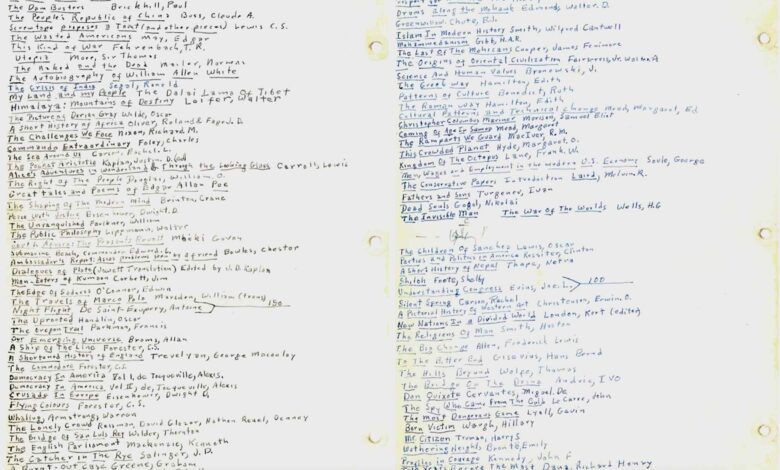 The Dam Busters Brickhill, Paul
The People's Republic of China Buss, Claude A.
Screwtape proposes a Toast (and other pieces) Lewis C.S.
The Wasted Americans May, Edgar
This Kind of War Fehrenbach, T.R.
Utopia More, Sir Thomas
The Naked and the Dead Mailer, Norman
The Autobiography of William Allen White
The Crisis of India Segal, Ronald
My Land and my People The Dalai Lama Of Tibet
Himalaya: Mountains of Destiny Loifer, Walter
The Picture of Dorian Gray Wilde, Oscar
A Short History of Africa Oliver, Roland & Fage, J.D.
The Challenges We Face Nixon, Richard M.
Commando Extraordinary Foley, Charles
The Sea Around Us Carson, Rachel L.
The Pocket Aristotle Kaplan, Justin D. (ed)
Alice's Adventures in Wonderland & Through the Looking Glass Carroll, Lewis
The Right Of The People Douglas, William O.
Great tales and Poems of Edgar Allan Poe
The Shaping Of The Modern Mind Brinton, Crane
Peace With Justice Eisenhower, Dwight D.
The Unvanquished Faulkner, William
The Public Philosophy Lippmann, Walter
South Africa: The Peasants Revolt Mbeki Govan
Submarine Beach, Commander Edward L.
Ambassador's Report: Asia's problems seen by a friend Bowles, Chester
Dialogues of Plato (Jowett Translation) Edited by J.D. Kaplan
Man-Eaters of Kumaon Corbett, Jim
The Edge Of Sadness O'Connor, Edwin
The Travels of Marco Polo Marsden, William (trans)
Night Flight De Saint-Exupery, Antoine 150
The Uprooted Handlin, Oscar
The Oregon Trail Parkman, Francis
Our Emerging Universe Broms, Allan
A Ship Of The Line Forester, C.S.
A Shortened History of England Trevelyan, George Macaulay
The Commodore Forester, C.S.
Democracy In America Vol I, de Tocqueville, Alexis.
Democracy in America Vol II, de Tocqueville, Alexis.
Crusade In Europe Eisenhower, Dwight D.
Flying Colours Forester, C.S.
Whaling Armstrong, Warren
The Lonely Crowd Riesman, David Glazer, Nathan Reuel, Denney
The Bridge Of San Luis Rey Wilder, Thornton
The English Parliament Mackenzie, Kenneth
The Catcher in The Rye Salinger, J.D.
A Burnt-Out Case Greene, Graham
Drums Along the Mohawk Edmonds, Walter D.
Greenwillow Chute, B.J.
Islam In Modern History Smith, Wilfred Cantwell
Mohammedanism Gibb, H.A.R.
The Last Of The Mohicans Cooper, James Fenimore
The Origins of Oriental Civilization Fairservis, Jr. Walter A
Science And Human Values Bronowski, J.
The Greek Way Hamilton, Edith
Patterns of Culture Benedict, Ruth
The Roman Way Hamilton, Edith
Cultural Patterns and Technical Change Mead, Margaret, Ed
Christopher Columbus Mariner Morison, Samuel Eliot
Coming Of Age In Samoa Mead, Margaret
The Ramparts We Guard MacIver, R.M.
This Crowded Planet Hyde, Margaret O.
Kingdom Of The Octopus Lane, Frank W.
Men, Wages and Employment in the modern U.S. Economy Soule, George
The Conservative Papers Introduction Laird, Melvin R.
Fathers and Sons Turgenev, Ivan
Dead Souls Gogol, Nikolai
The Invisible Man The War Of The Worlds Wells, H.G
The Children Of Sanchez Lewis, Oscar
Parties and Politics in America Rossiter, Clinton
A Short History of Nepal Thapa, Netra
Shiloh Foote, Shelby
Understanding Congress Evins, Joe L. 100
Silent Spring Carson, Rachel
A Pictorial History of Western art Christensen, Erwin O.
New Nations In a Divided World London, Kurt (editor)
The Religions Of Man Smith, Huston
The Big Change Allen, Frederick Lewis
To The Bitter End Gisevius, Hans Bernd
The Hills Beyond Wolfe, Thomas
The Bridge On The Drina Andric, IVO
Don Quixote Cervantes, Miguel De
The Spy Who Came From The Cold Le Carre, John
The Most Dangerous Game Lyall, Gavin
Born Victim Waugh, Hillary
Mr. Citizen Truman, Harry S
Wuthering Heights Brontë, Emily
Profiles in Courage Kennedy, John F
Two Years Before The Mast Dana, Richard Henry